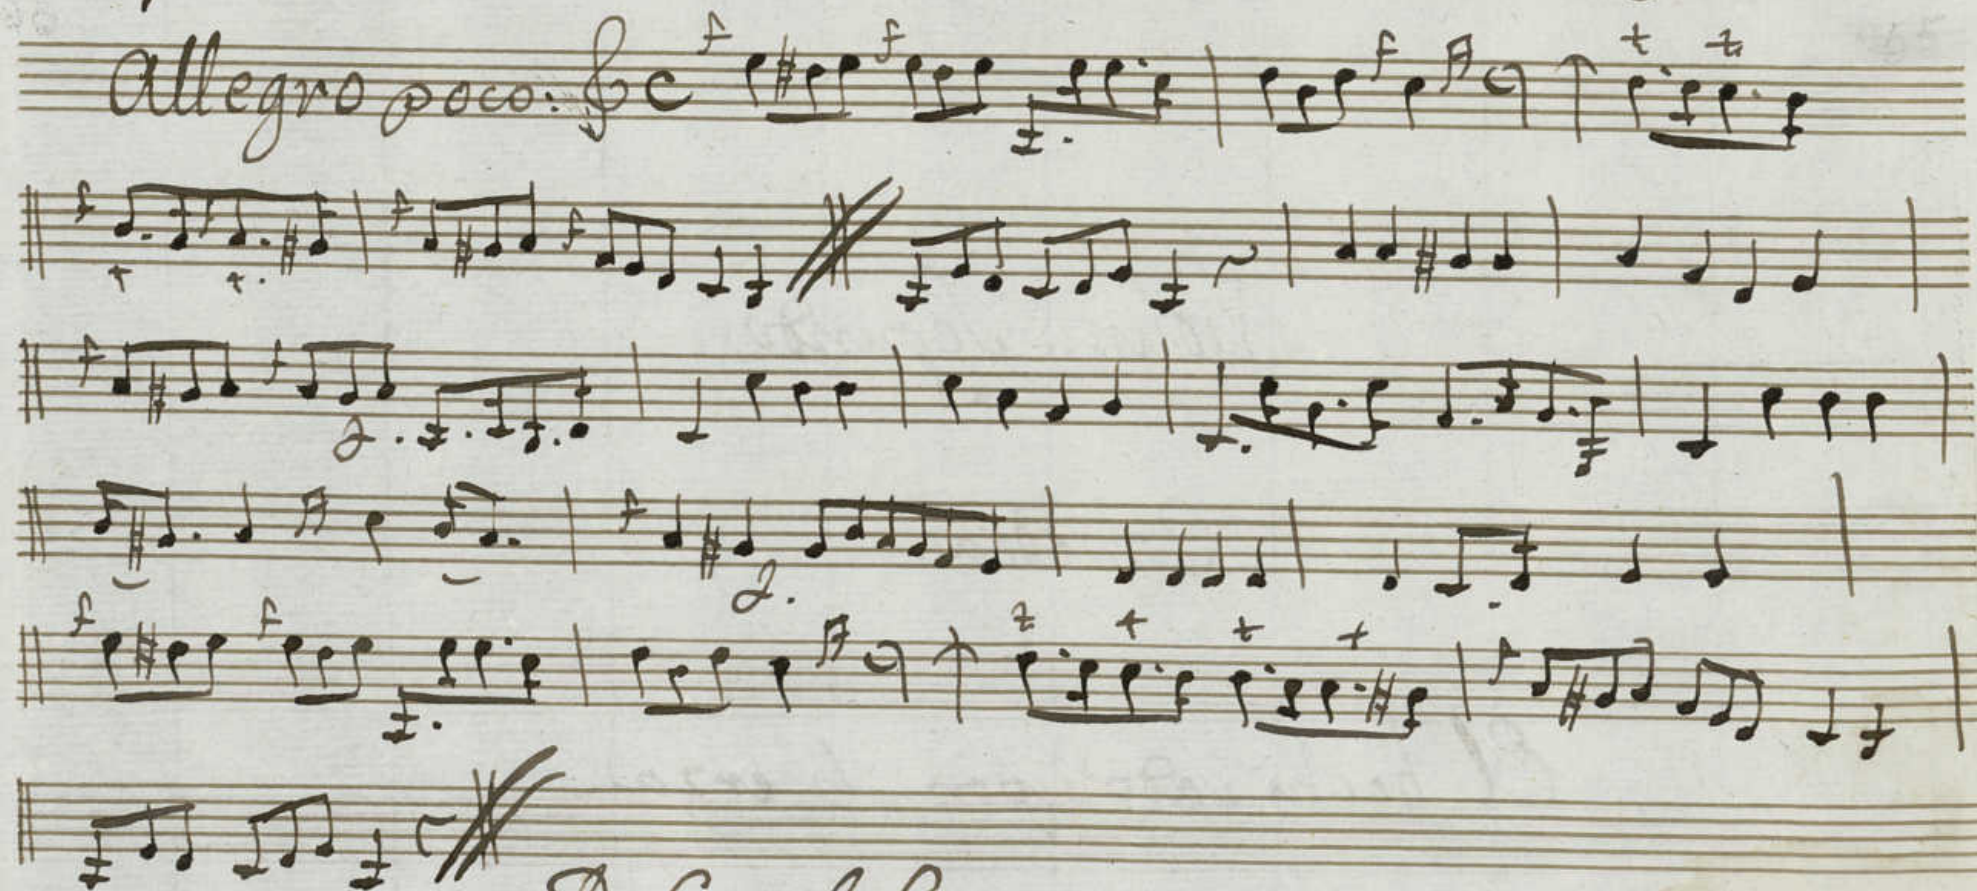 Allegro poco: